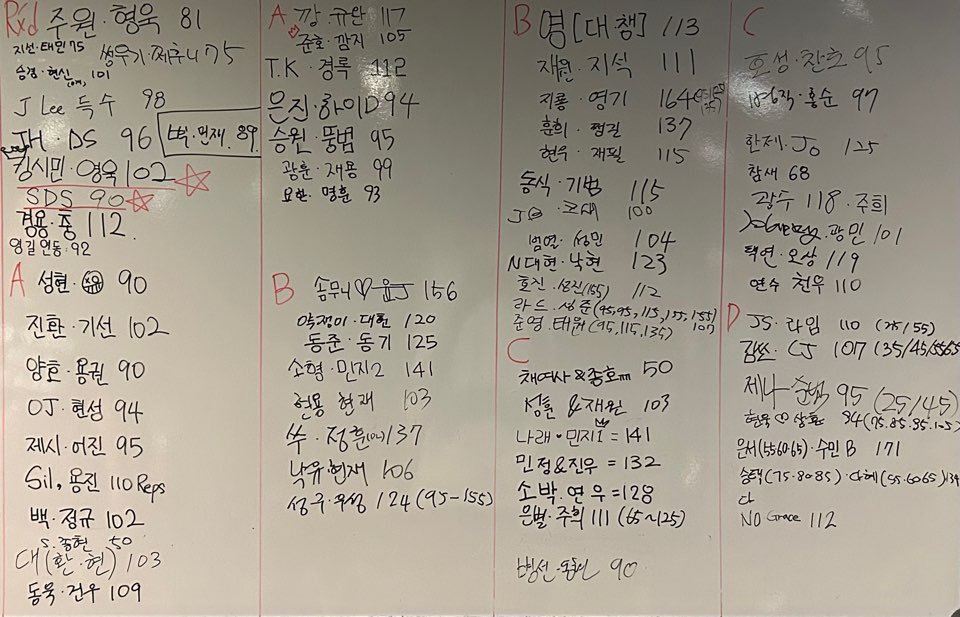 Rxd 주원·형욱 81
지선·태민 75
성우기·찌추니 75
승경·현신 101
J Lee 득수 98
JH·DS 96
벽·민재 89
킹시민·영욱 102
SDS 90
경용·중 112
영길 연동: 92
A 성현· 90
진환·기선 102
양호·용권 90
OJ·현성 94
제시·어진 95
Sil, 용진 110 Reps
백·정규 102
S.종현 50
대(환·현) 103
동욱·건우 109
A 깡·규완 117
준호·깜지 105
T.K·경록 112
은진·하이D 94
승원·뚱범 95
광훈·재용 99
요한·명훈 93
B 솜무니♡윤J 156
야쟁이·대훈 120
동준·동기 125
소형·민지2 141
현용 현재 103
쑤·정훈 137
낙유현재 106
성구·우성 124 (95-155)
B 명[대챙] 113
재원·지석 111
지룡·영기 164
훈희·평길 137
현우·재필 115
동식·기범 115
100
범열·성민 104
N대현·낙현 123
호진·성진(155) 112
라드·상준 (95, 95, 115, 155, 155)
준영·태원 (95, 115, 135) 107
C
채여사&종호 50
성훈 &재원 103
나래·민지1 = 141
민정&진우 = 132
소박·연우 = 128
은별·주희 111 (65~125)
90
C
호성·찬호 95
홍순 97
한제·Jo 125
참새 68
광수 118·주희
광민 101
택연·오상 119
연수 천우 110
D JS·라임 110 (25/55)
김쏘·CJ 107 (35/45/55 65
제나·순범 95 (25/45)
현욱♡상환 84 (75.85.95.105)
은서(55 60·65)·수민 B 171
송택(75·80·85)·다혜(55·60 65) 134
다
No Grace 112